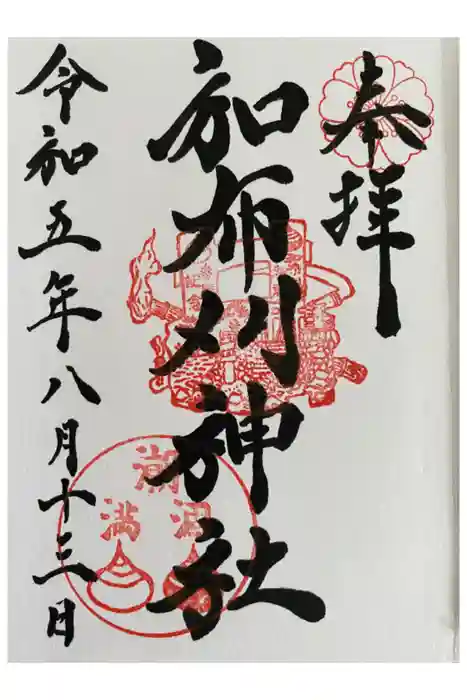 奉拝
和布刈神社
令和五年八月十三日
潮
満